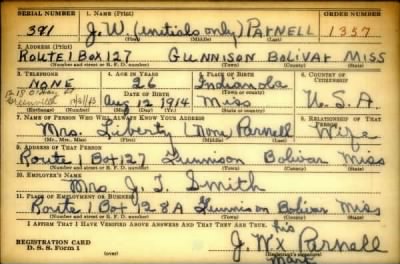 SERIAL NUMBER 1. NAME (Print) ORDER NUMBER
391 J. W. (initials only) Parnell 1357
(First) (Middle) (Last)
2. ADDRESS (Print)
Route 1 Box 127 Gunnison Bolivar Miss
(Number and street or R. F. D. number) (Town) (County) (State)
3. TELEPHONE 4. AGE IN YEARS 5. PLACE OF BIRTH 6. COUNTRY OF CITIZENSHIP
None 26 Indianola
DATE OF BIRTH (Town or county)
Greenville Aug 12 1914 Miss U.S.A.
7. NAME OF PERSON WHO WILL ALWAYS KNOW YOUR ADDRESS 8. RELATIONSHIP OF THAT PERSON
Mrs. Liberty (None) Parnell Wife
(Mr., Mrs., Miss) (First) (Middle) (Last)
9. ADDRESS OF THAT PERSON
Route 1 Box 127 Gunnison Bolivar Miss
(Number and street or R. F. D. number) (Town) (County) (State)
10. EMPLOYER'S NAME
Mrs. J. T. Smith
11. PLACE OF EMPLOYMENT OR BUSINESS
Route 1 Box 128A Gunnison Bolivar Miss
(Number and street or R. F. D. number) (Town) (County) (State)
I AFFIRM THAT I HAVE VERIFIED ABOVE ANSWERS AND THAT THEY ARE TRUE.
his
REGISTRATION CARD J. W. x Parnell
D. S. S. Form 1 (over) (Registrant's signature)
Mark